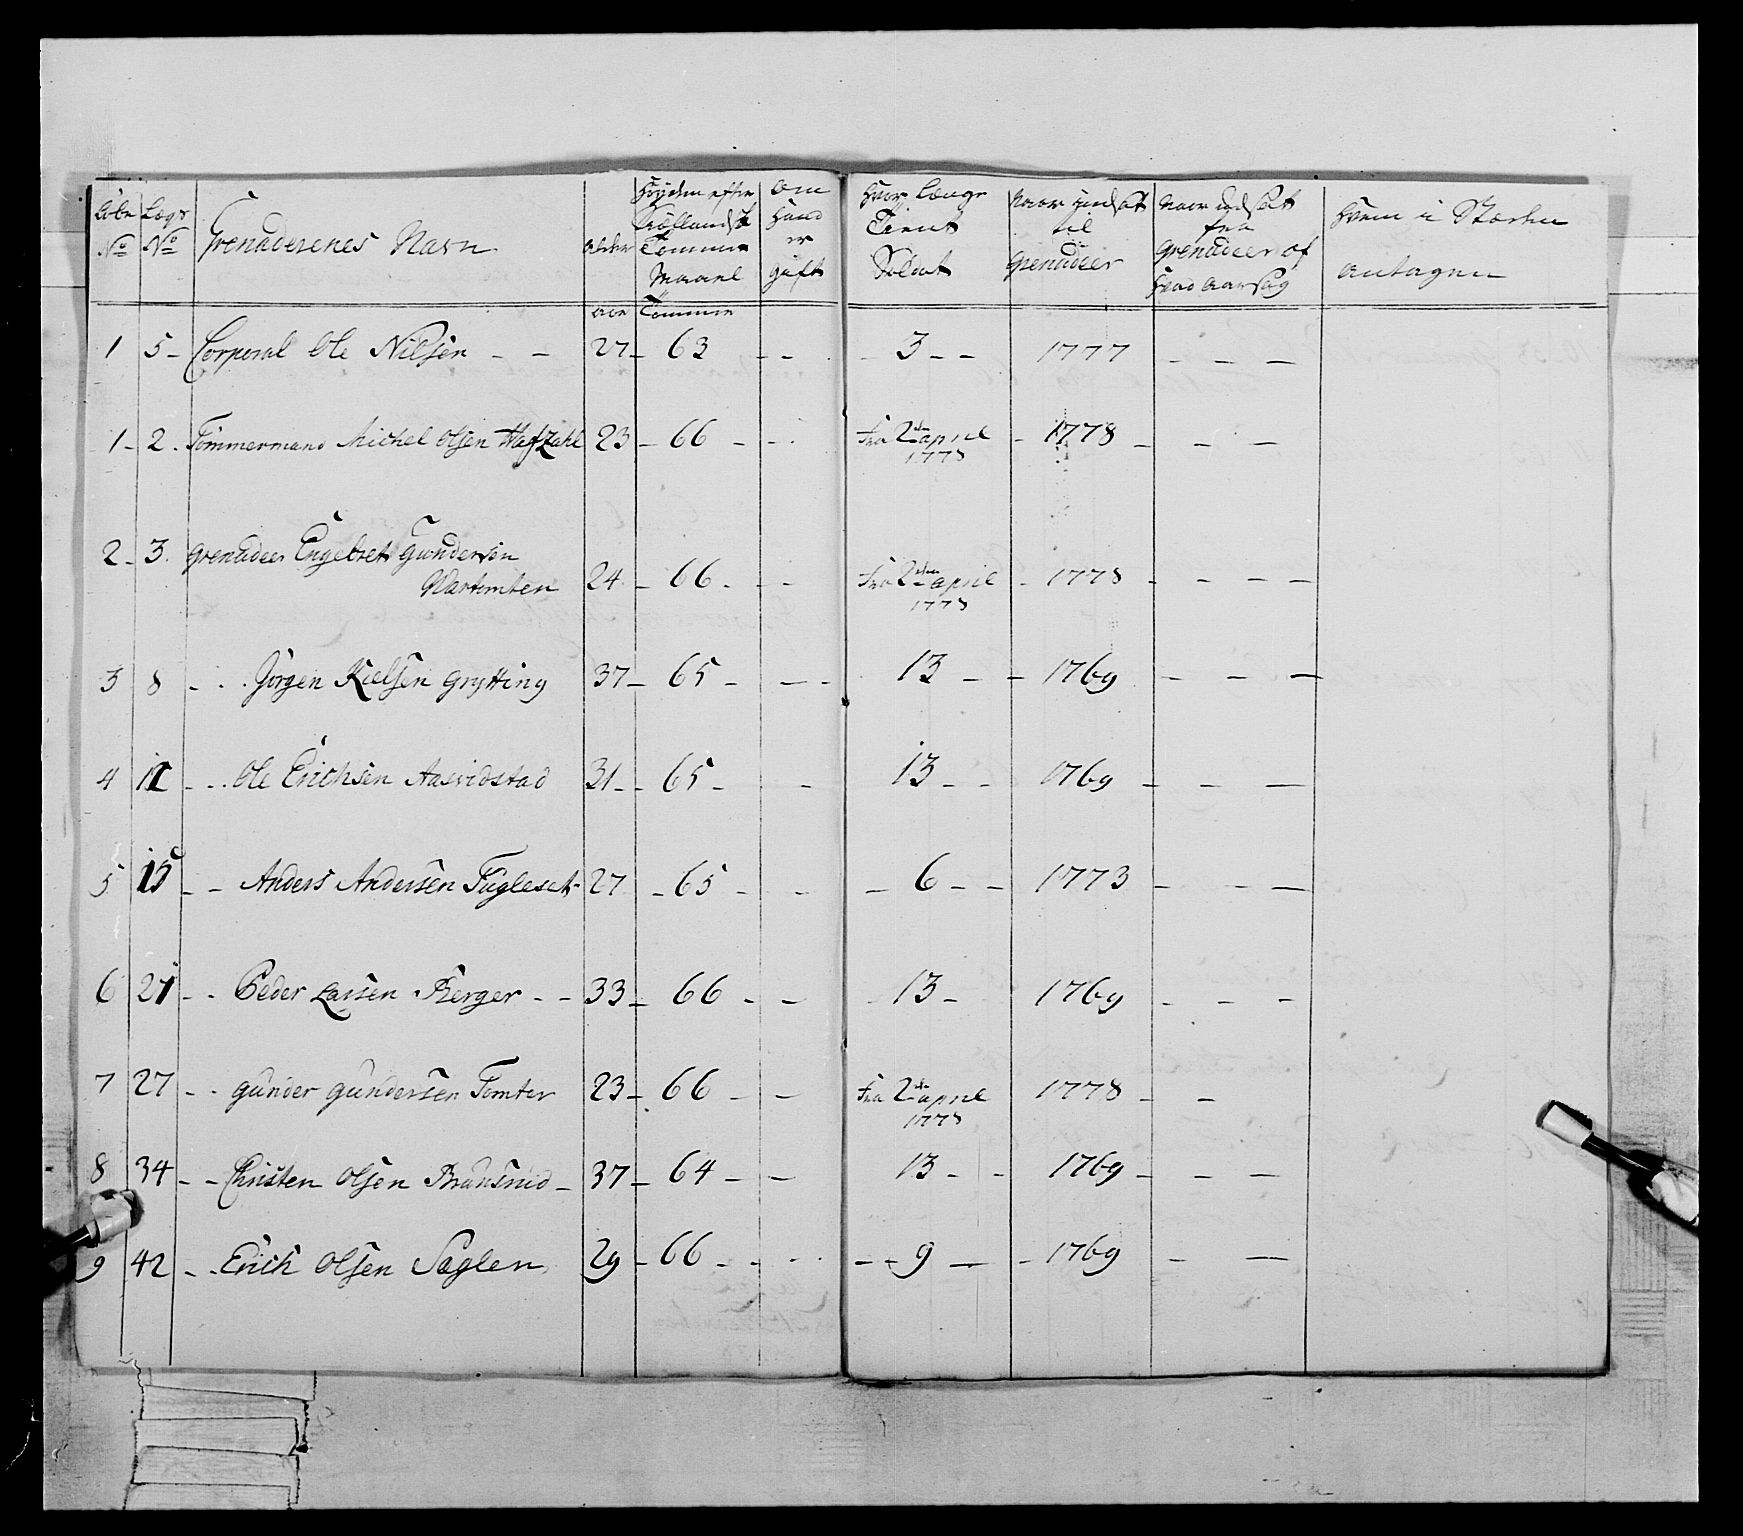 Løbe No | Lægs No | Grenaderenes Navn | Alder | Høyden efter Siællandsk Tomme Maael | Om hand er gift | Hvor længe Tient Soldat | Naar Indsat til Grenadeer | Naar udsat fra Grenadeer of hvad Aarsag | Hvem i Stæden antagen
Aar | Tommer
1 | 5 - | Corporal Ole Nilsen - - | 27 - | 63 | - - | 3 - - | 1777 | - - -
1 - | 2 . | Tømmermand Michel Olsen Hafzahl | 23 | - 66 - | - . | Fra 2den april 1778 | - 1778 - | - -
2 - | 3. | Grenadeer Engebret Gundersen
Wartomten | 24 | - 66 - | - | Fra 2den april 1778 | - 1778 - | - - -
3 | 8 | - . . Jørgen Kielsen Grytting | 37 - | 65 - | - - | 13 - | - 1769 | - - -
4 | 11 | - - . Ole Erichsen Aasvidstad | 31 - | - 65 - | - | 13 - - | 1769 - | - -
5 | 15 | - - Anders Andersen Fugleset - | 27 | - 65 - | - | - 6 - - | 1773 | - - -
6 | 21 | - - Peder Larsen Berger - - | 33 - | 66 - | - | - 13 - | 1769 | - - -
7 | 27 | - - Gunder Gundersen Tomter | 23 - | 66 - | - | Fra 2den april 1778 | 1778 - | - -
8 | 34 | - - Christen Olsen | 37 - | 64 - | - | 13 - - | 1769 - | - -
9 | 42 | - - Erich Olsen Saglen | 29 - | 66 - | - . | - - 9 - | - 1769 | - -